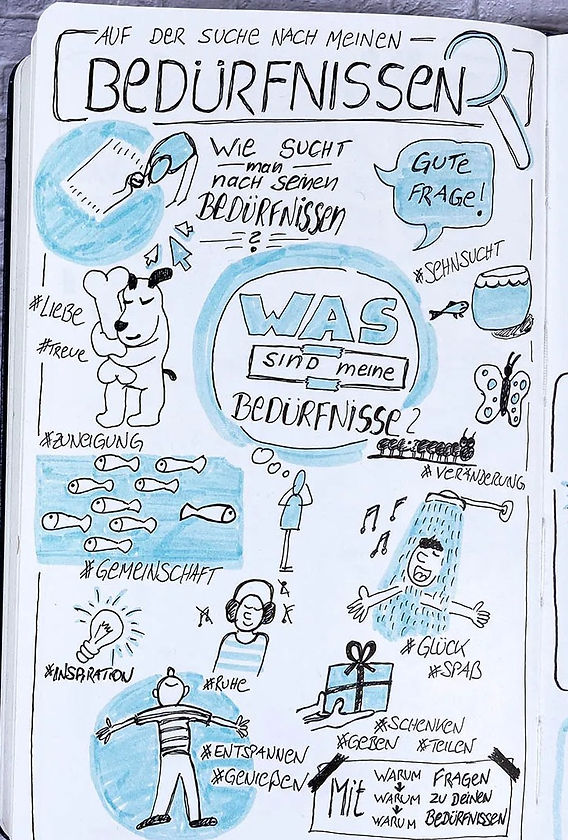 AUF DER SUCHE NACH MEINEN
BEDÜRFNISSEN
WIE SUCHT
man
nach seinen
BEDÜRFNISSEN
?
GUTE
FRAGE!
#SEHNSUCHT
#LIEBE
#TREUE
#ZUNEIGUNG
WAS
SIND meine
BEDÜRFNISSE?
#VERÄNDERUNG
#GEMEINSCHAFT
#GLÜCK
#SPAß
#INSPIRATION
#RUHE
#SCHENKEN
#GEBEN #TEILEN
#ENTSPANNEN
#GENIEßEN
Mit WARUM FRAGEN
WARUM ZU DEINEN
WARUM BEDÜRFNISSEN